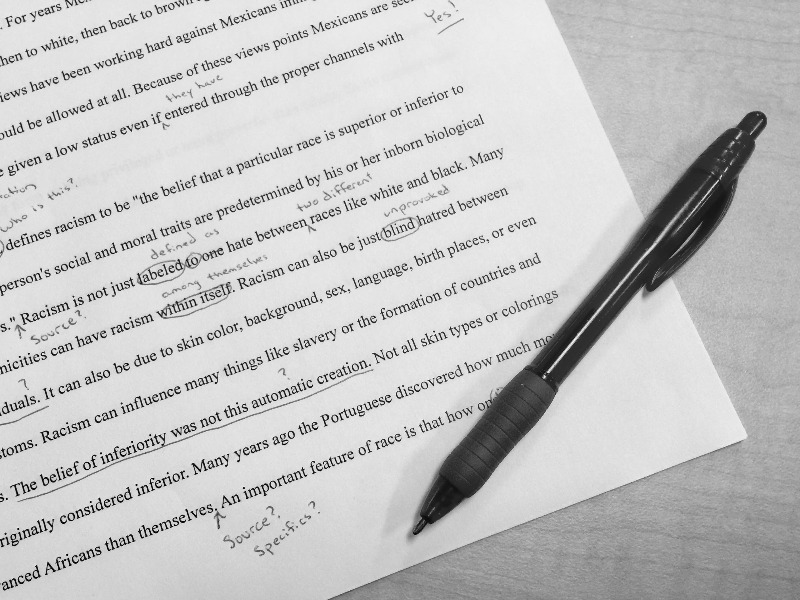 . For years
then to white, then back to brown
iews have been working hard against Mexicans
Yes!
ould be allowed at all. Because of these views points Mexicans are
they have
e given a low status even if entered through the proper channels with
who is this?
defines racism to be "the belief that a particular race is superior or inferior to
person's social and moral traits are predetermined by his or her inborn biological
defined as two different unprovoked
s." Racism is not just labeled to one hate between races like white and black. Many
Source? among themselves
nicities can have racism within itself. Racism can also be just blind hatred between
?
duals. It can also be due to skin color, background, sex, language, birth places, or even
?
stoms. Racism can influence many things like slavery or the formation of countries and
s. The belief of inferiority was not this automatic creation. Not all skin types or colorings
riginally considered inferior. Many years ago the Portuguese discovered how much
anced Africans than themselves. An important feature of race is that how
Source?
Specifics?